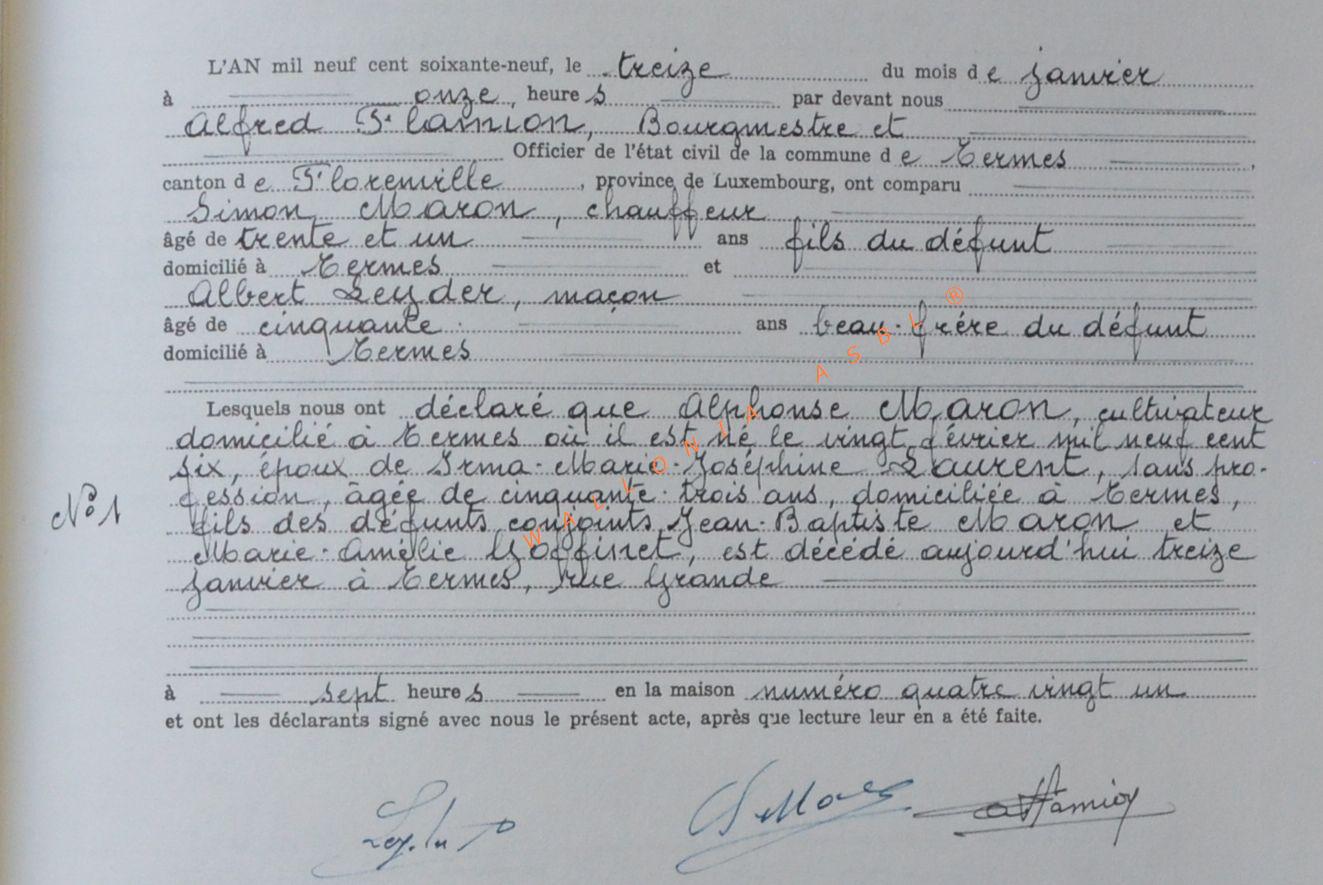 L'AN mil neuf cent soixante-neuf, le treize du mois de janvier
à onze, heures par devant nous
Alfred St lamion, Bourgmestre et
Officier de l'état civil de la commune de Termes,
canton de Florenville, province de Luxembourg, ont comparu
Simon Maron, chauffeur
âgé de trente et un ans fils du défunt
domicilié à Termes et
Albert Leyder, maçon
âgé de cinquante ans beau-frère du défunt
domicilié à Termes
Lesquels nous ont déclaré que Alphonse Maron, cultivateur
domicilié à Termes où il est né le vingt février mil neuf cent
six, époux de Irma-Marie-Joséphine Laurent, sans pro-
fession, âgée de cinquante-trois ans, domiciliée à Termes,
N° 1
fils des défunts conjoints Jean-Baptiste Maron et
Marie-Amélie Goffinet, est décédé aujourd'hui treize
janvier à Termes, rue Grande
à sept heures en la maison numéro quatre vingt un
et ont les déclarants signé avec nous le présent acte, après que lecture leur en a été faite.
WALLONIA ASBL ®